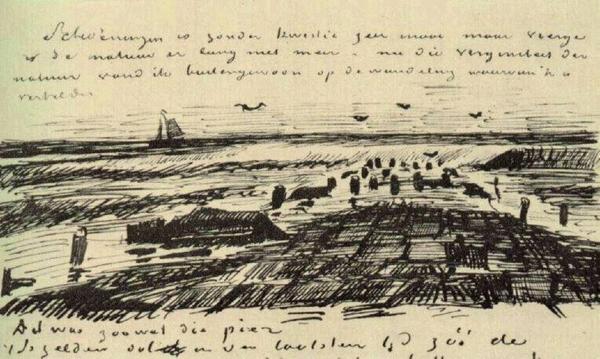 Scheveningen is zonder kwestie zeer mooi maar vierge
is de natuur er lang niet meer - nu die verginiteit der
natuur vond ik buitengewoon op de wandeling waarvan ik u
vertelde
Dit was zoowat die pier
zelden de